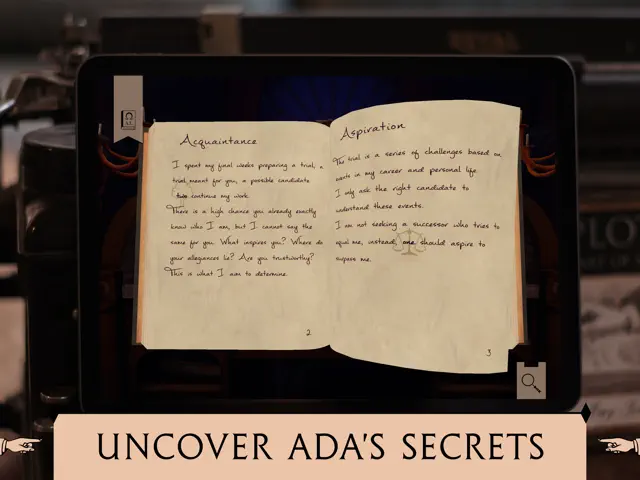 Acquaintance
I spent my final weeks preparing a trial, a
trial meant for you, a possible candidate
two continue my work.
There is a high chance you already exactly
know who I am, but I cannot say the
same for you. What inspires you? Where do
your allegiances lie? Are you trustworthy?
This is what I aim to determine.
2
Aspiration
The trial is a series of challenges based on
events in my career and personal life.
I only ask the right candidate to
understand these events.
I am not seeking a successor who tries to
equal me, instead, one should aspire to
surpass me.
3
UNCOVER ADA'S SECRETS